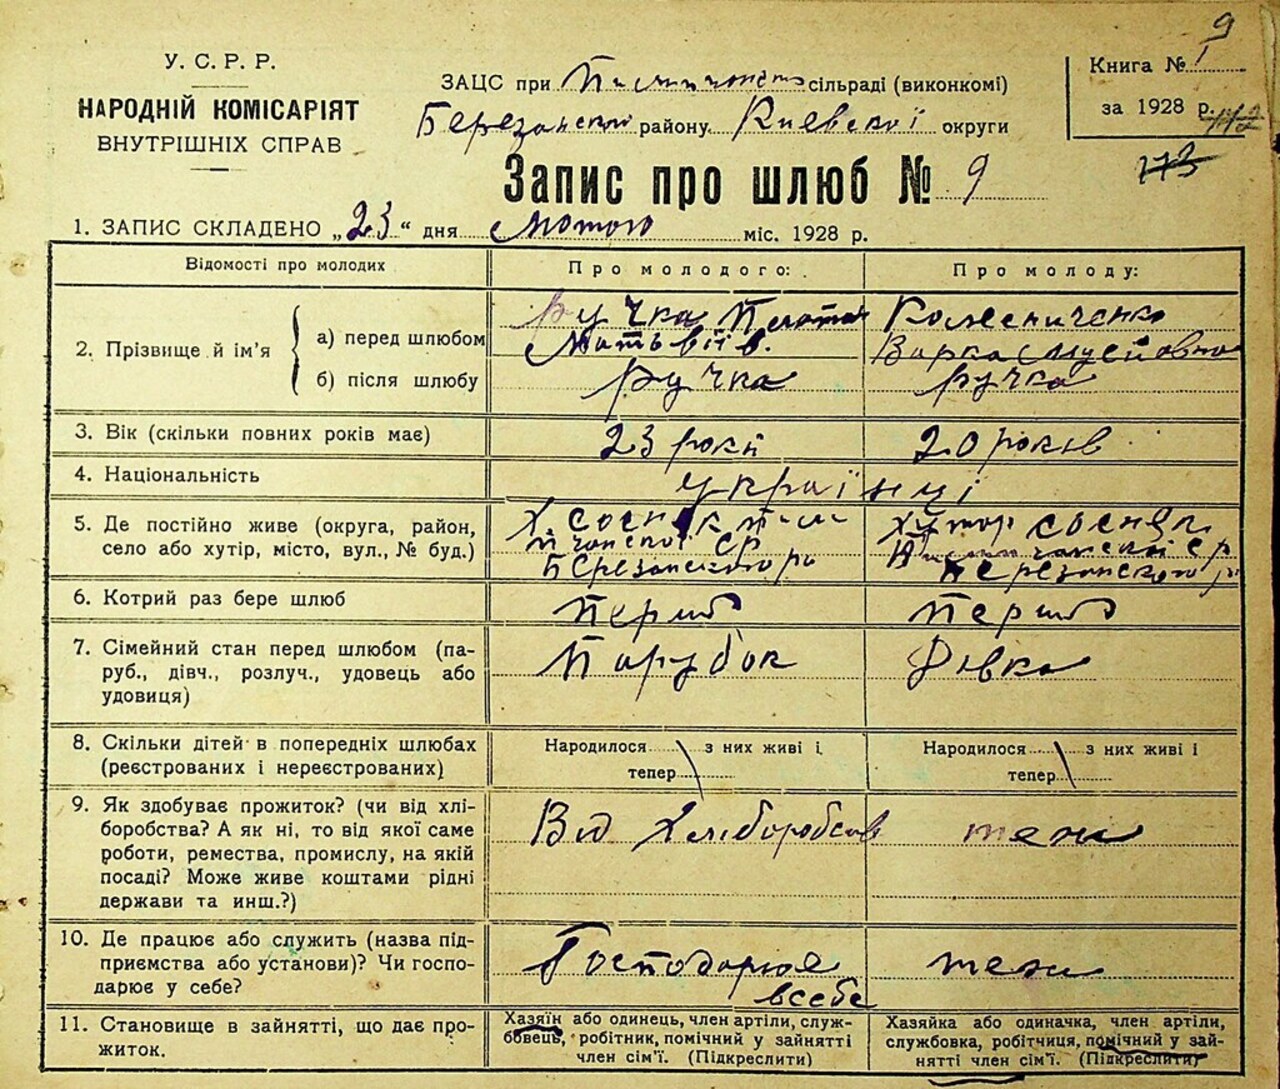 9
У. С. Р. Р.
НАРОДНІЙ КОМІСАРІЯТ
ВНУТРІШНІХ СПРАВ
ЗАЦС при сільраді (виконкомі)
Березанской району Киевскої округи
Книга № 1
за 1928 р.
173
Запис про шлюб № 9
1. ЗАПИС СКЛАДЕНО „23“ дня лютого міс. 1928 р.
Відомості про молодих
Про молодого:
Про молоду:
2. Прізвище й ім'я
а) перед шлюбом
Ручка Платон
Матьвіїв.
Колесниченко
Варка Мусиовна
б) після шлюбу
Ручка
Ручка
3. Вік (скільки повних років має)
23 роки
20 років
4. Національність
українці
5. Де постійно живе (округа, район,
село або хутір, місто, вул., № буд.)
Х. Сосняк
СР
Березанского р
Хутор Сосняк
СР
Березанского р
6. Котрий раз бере шлюб
Перший
Перший
7. Сімейний стан перед шлюбом (па-
руб., дівч., розлуч., удовець або
удовиця)
Парубок
Дівка
8. Скільки дітей в попередніх шлюбах
(реєстрованих і нереєстрованих)
Народилося з них живі і
тепер
Народилося з них живі і
тепер
9. Як здобуває прожиток? (чи від хлі-
боробства? А як ні, то від якої саме
роботи, ремества, промислу, на якій
посаді? Може живе коштами рідні
держави та инш.?)
Від Хліборобства
теж
10. Де працює або служить (назва під-
приємства або установи)? Чи госпо-
дарює у себе?
Господарює
всебе
теж
11. Становище в зайнятті, що дає про-
житок.
Хазяїн або одинець, член артіли, служ-
бовець, робітник, помічний у зайнятті
член сім'ї. (Підкреслити)
Хазяйка або одиначка, член артіли,
службовка, робітниця, помічний у зай-
нятті член сім'ї. (Підкреслити)